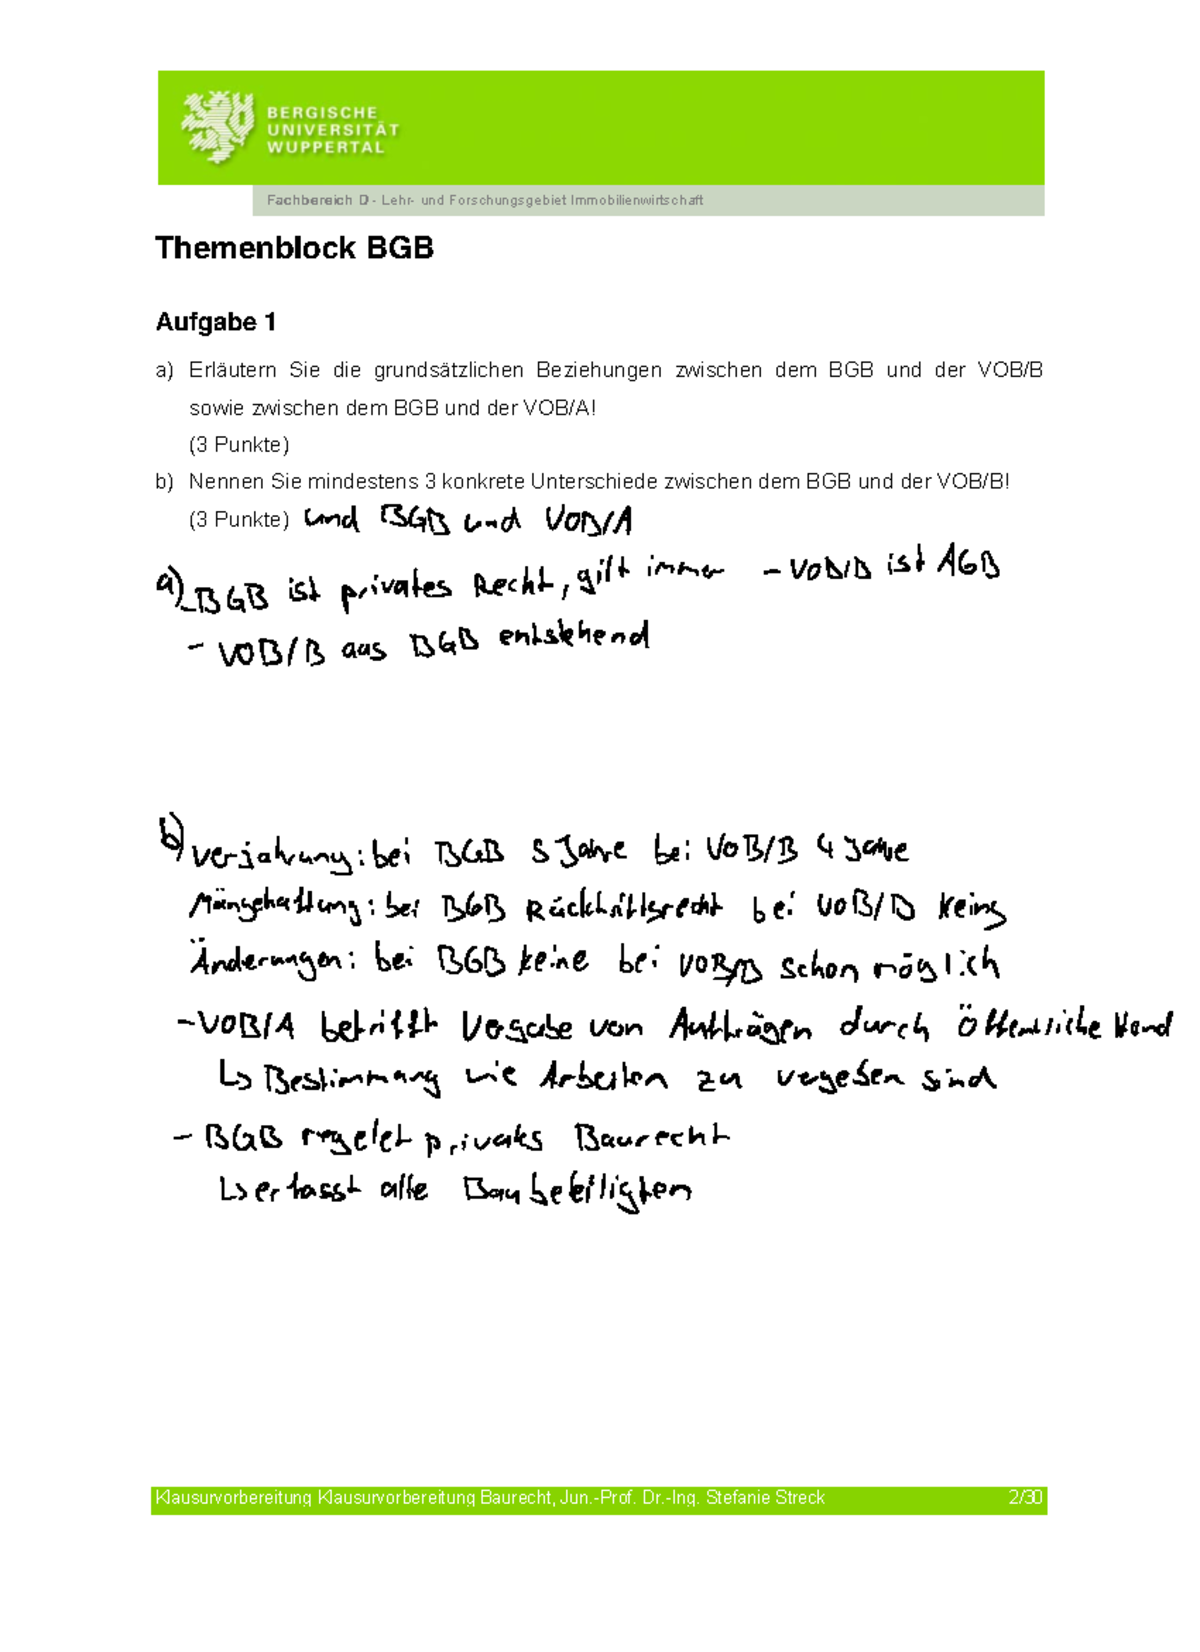 BERGISCHE
UNIVERSITÄT
WUPPERTAL
Fachbereich D - Lehr- und Forschungsgebiet Immobilienwirtschaft
Themenblock BGB
Aufgabe 1
a) Erläutern Sie die grundsätzlichen Beziehungen zwischen dem BGB und der VOB/B
sowie zwischen dem BGB und der VOB/A!
(3 Punkte)
b) Nennen Sie mindestens 3 konkrete Unterschiede zwischen dem BGB und der VOB/B!
(3 Punkte) und BGB und VOB/A
a) - BGB ist privates Recht, gilt immer - VOB/B ist AGB
- VOB/B aus BGB entstehend
b) Verjährung: bei BGB 5 Jahre bei VOB/B 4 Jahre
Mängelhaftung: bei BGB Rücktrittsrecht bei VOB/B keins
Änderungen: bei BGB keine bei VOB/B schon möglich
- VOB/A betrifft Vergabe von Aufträgen durch Öffentliche Hand
↳ Bestimmung wie Arbeiten zu vergeben sind
- BGB regelet privates Baurecht
↳ erfasst alle Baubeteiligten
Klausurvorbereitung Klausurvorbereitung Baurecht, Jun.-Prof. Dr.-Ing. Stefanie Streck 2/30